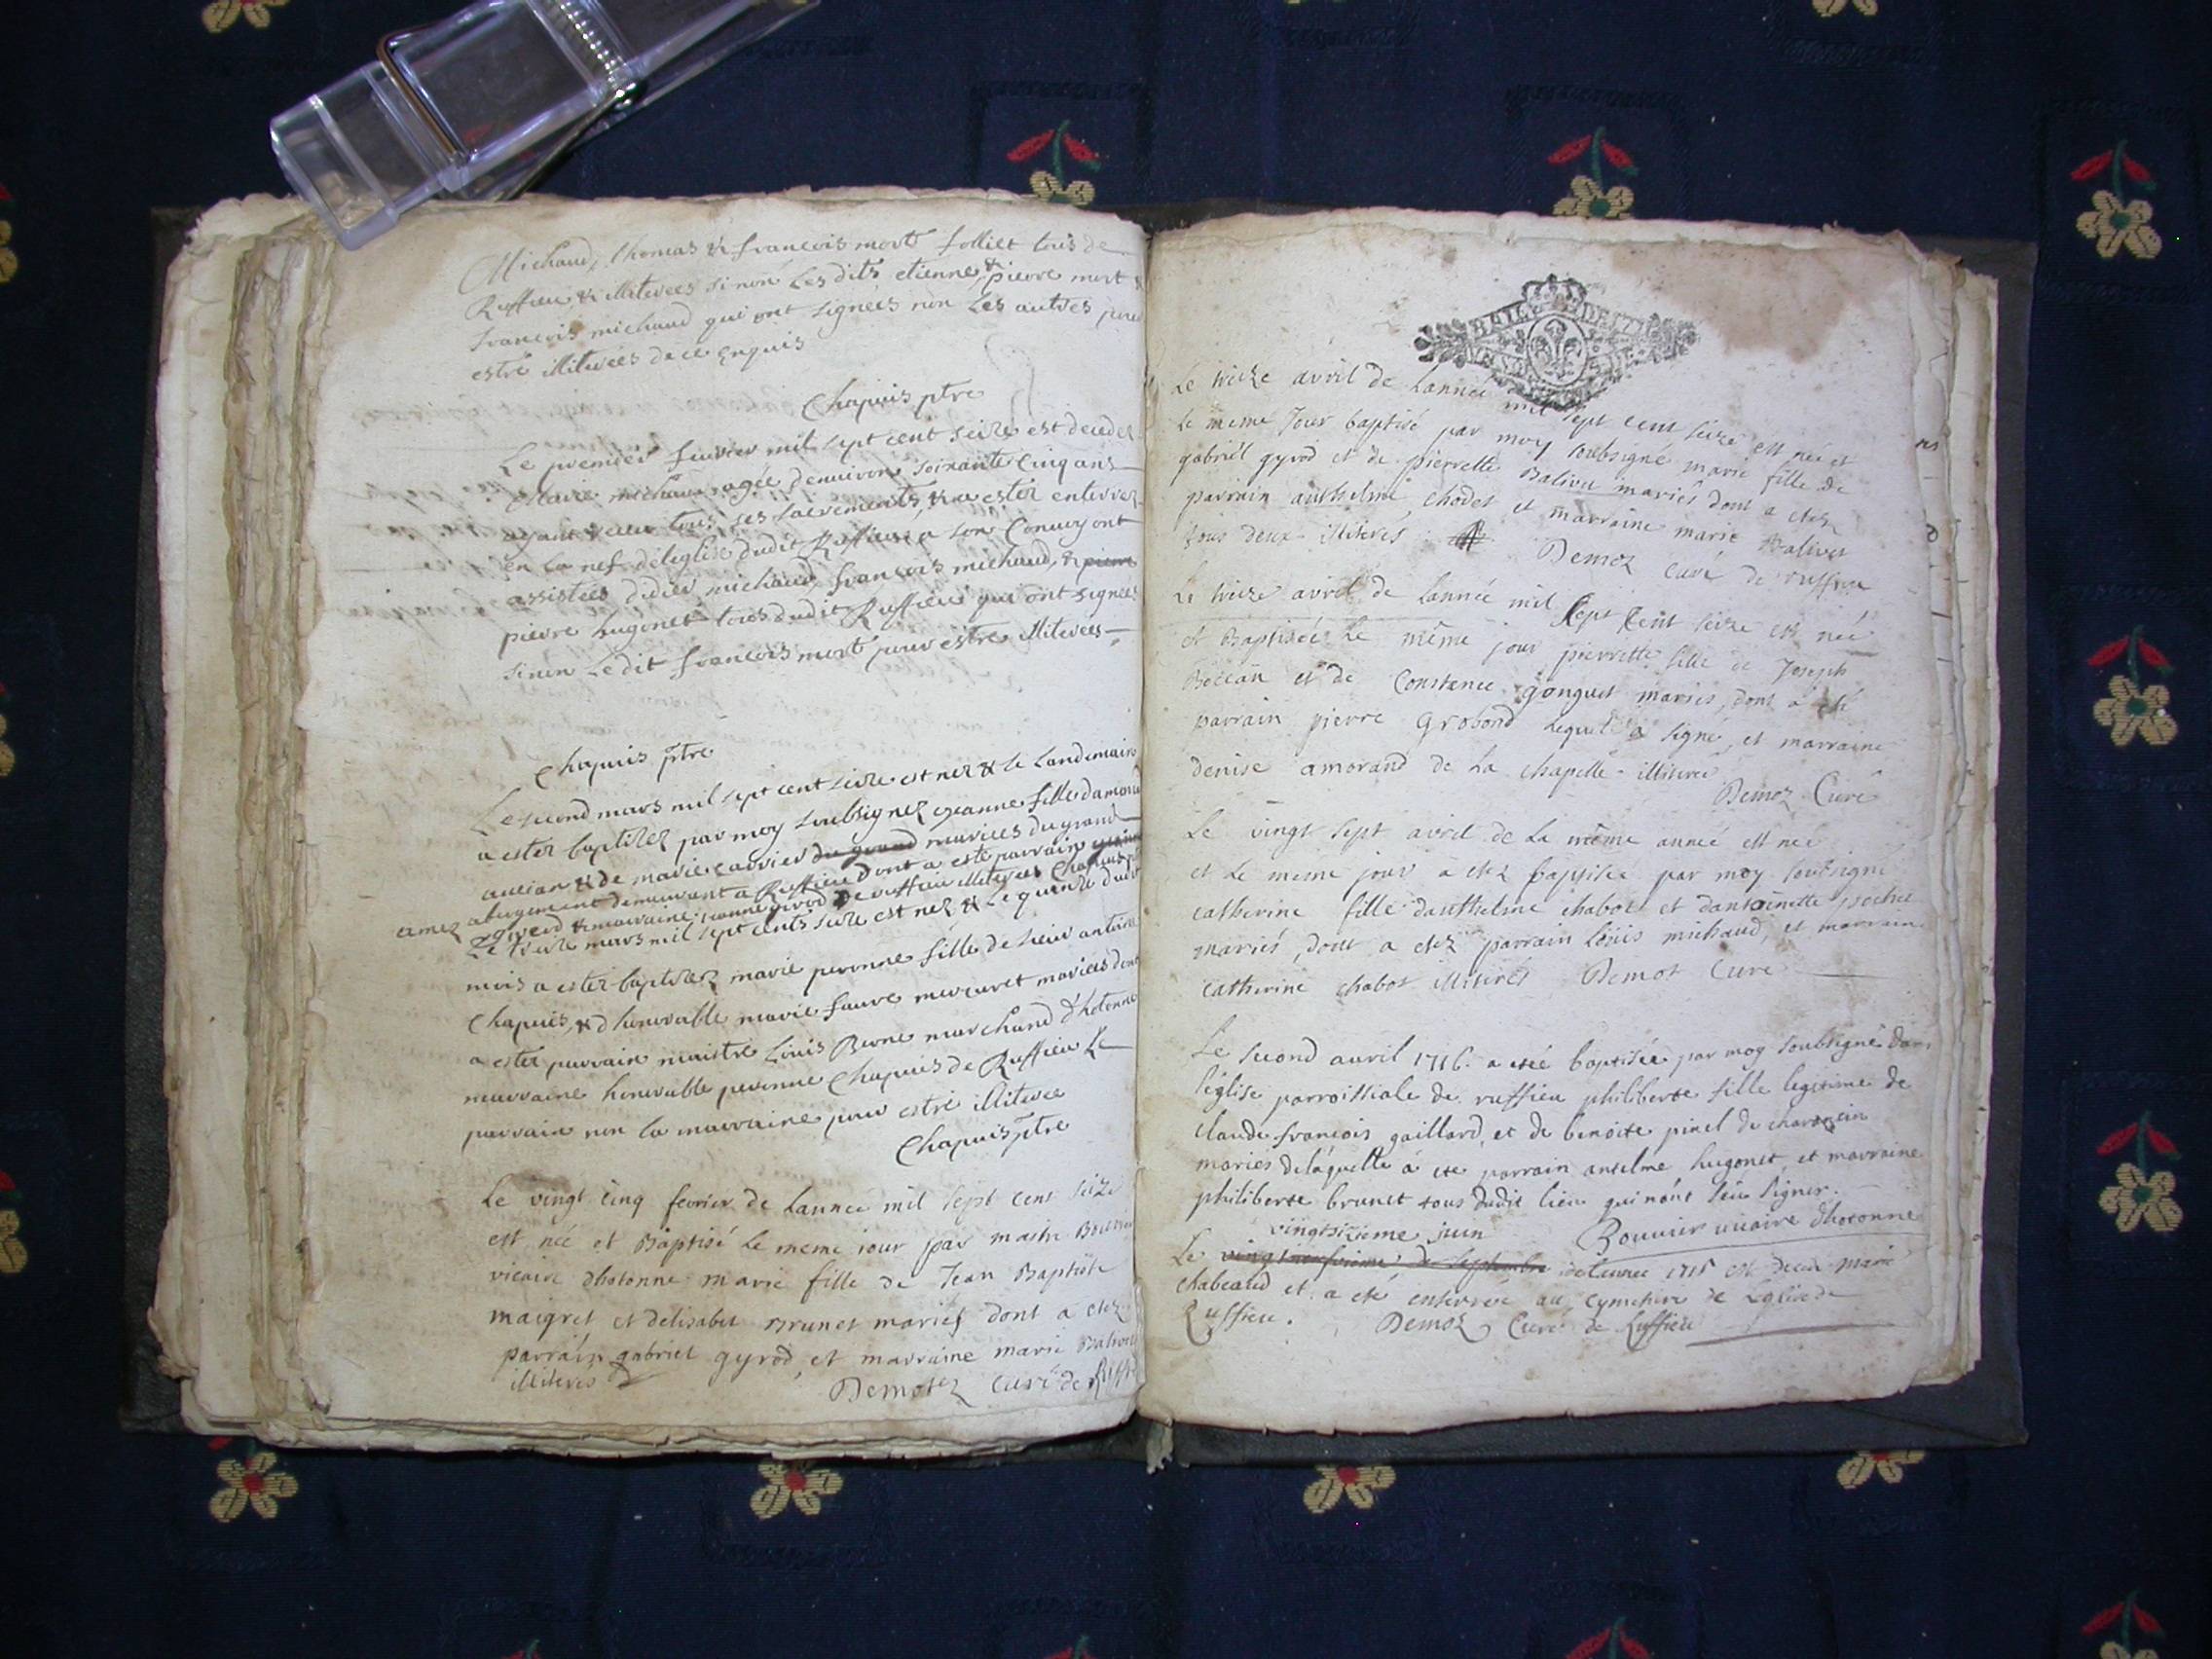 Michaud, thomas & francois mort folliet tous de
Ruffieu & illiterees sinon Les dits etienne & pierre mort &
francois michaud qui ont signées non Les autres pour
estre illiterées de ce enquis
Chapuis ptre
Le premier feuvrier mil sept cent seize est decedez
Claire michaud agée denuiron soixante Cinq ans
ayant receu tous ses sacrements, & a ester enterrez
en La nef de leglise dudit Ruffieu a son Conuoy ont
assistées didier michaud, francois michaud, & pierre
pierre hugonet tous dudit Ruffieu qui ont signées
sinon Ledit francois mort pour estre illiterées
Chapuis ptre
Le second mars mil sept cent seize est nez & le Landemain
a ester baptisez par moy soubsignez jeanne fille damond
aucian & de marie carrier du grand mariées du grand
abergement demeurant a Ruffieu dont a este parrain
amez gyrod & marraine jeanne gyrod de ruffieu illiterees Chapuis
Le treize mars mil sept cents seize est nez & Le quinze dudit
mois a ester baptisez marie peronne fille de sieur antoine
Chapuis, & d'honorable marie faure mercuret mariées dont
a ester parrain maistre Louis Berne marchand d'hotonne
marraine honorable peronne Chapuis de Ruffieu Le
parrain non la marraine pour estre illiteree
Chapuis ptre
Le vingt cinq fevrier de Lannee mil sept cent seize
est née et Baptisé Le meme jour par maitre Bouvier
vicaire dhotonne marie fille de Jean Baptiste
maigret et delisabet Brunet mariés dont a etez
parrain gabriel gyrod, et marraine marie Balivet
illiterés
Demotz curé de Ruffieu
Le treize avril de Lannée mil sept cent seize est née et
Le meme Jour baptisé par moy soubsigné marie fille de
gabriel gyrod et de pierrette Balivet mariés dont a etez
parrain anthelme chodet et marraine marie Balivet
tous deux illiterés
Demoz curé de ruffieu
Le treize avril de Lannée mil sept cent seize est née
et Baptisée Le même jour pierrette fille de Joseph
Beccan et de Constance gonguet mariés, dont a été
parrain pierre Grobond Lequel a signé, et marraine
denise amorand de La chapelle illiteree
Demoz Curé
Le vingt sept avril de La même année est née
et Le meme jour a etez baptisée par moy soubsigné
catherine fille danthelme chabot et dantoinette pochet
mariés, dont a etez parrain Louis michaud, et marraine
catherine chabot illiterés Demoz Curé
Le second avril 1716. a eteé baptisée par moy soubsigné dans
l'église parroissiale de ruffieu philiberte fille legitime de
claude françois gaillard, et de benoite pinel de charancin
mariés delaquelle a ete parrain anselme hugonet, et marraine
philiberte brunet tous dudit lieu qui n'ont sçeu signer.
Bouvier vicaire d'hotonne
vingtsixieme juin
Le de Septembre de Lannee 1715 est deced marie
chabeaud et a été enterrée au cymetiere de Leglise de
Ruffieu. Demoz Curé de Ruffieu